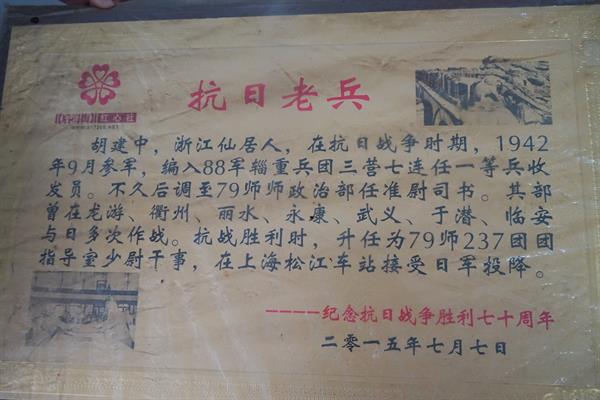 抗日老兵
红心社
胡建中，浙江仙居人，在抗日战争时期，1942
年9月参军，编入88军辎重兵团三营七连任一等兵收
发员。不久后调至79师师政治部任准尉司书。其部
曾在龙游、衢州、丽水、永康、武义、于潜、临安
与日多次作战。抗战胜利时，升任为79师237团团
指导室少尉干事，在上海松江车站接受日军投降。
————纪念抗日战争胜利七十周年
二零一五年七月七日